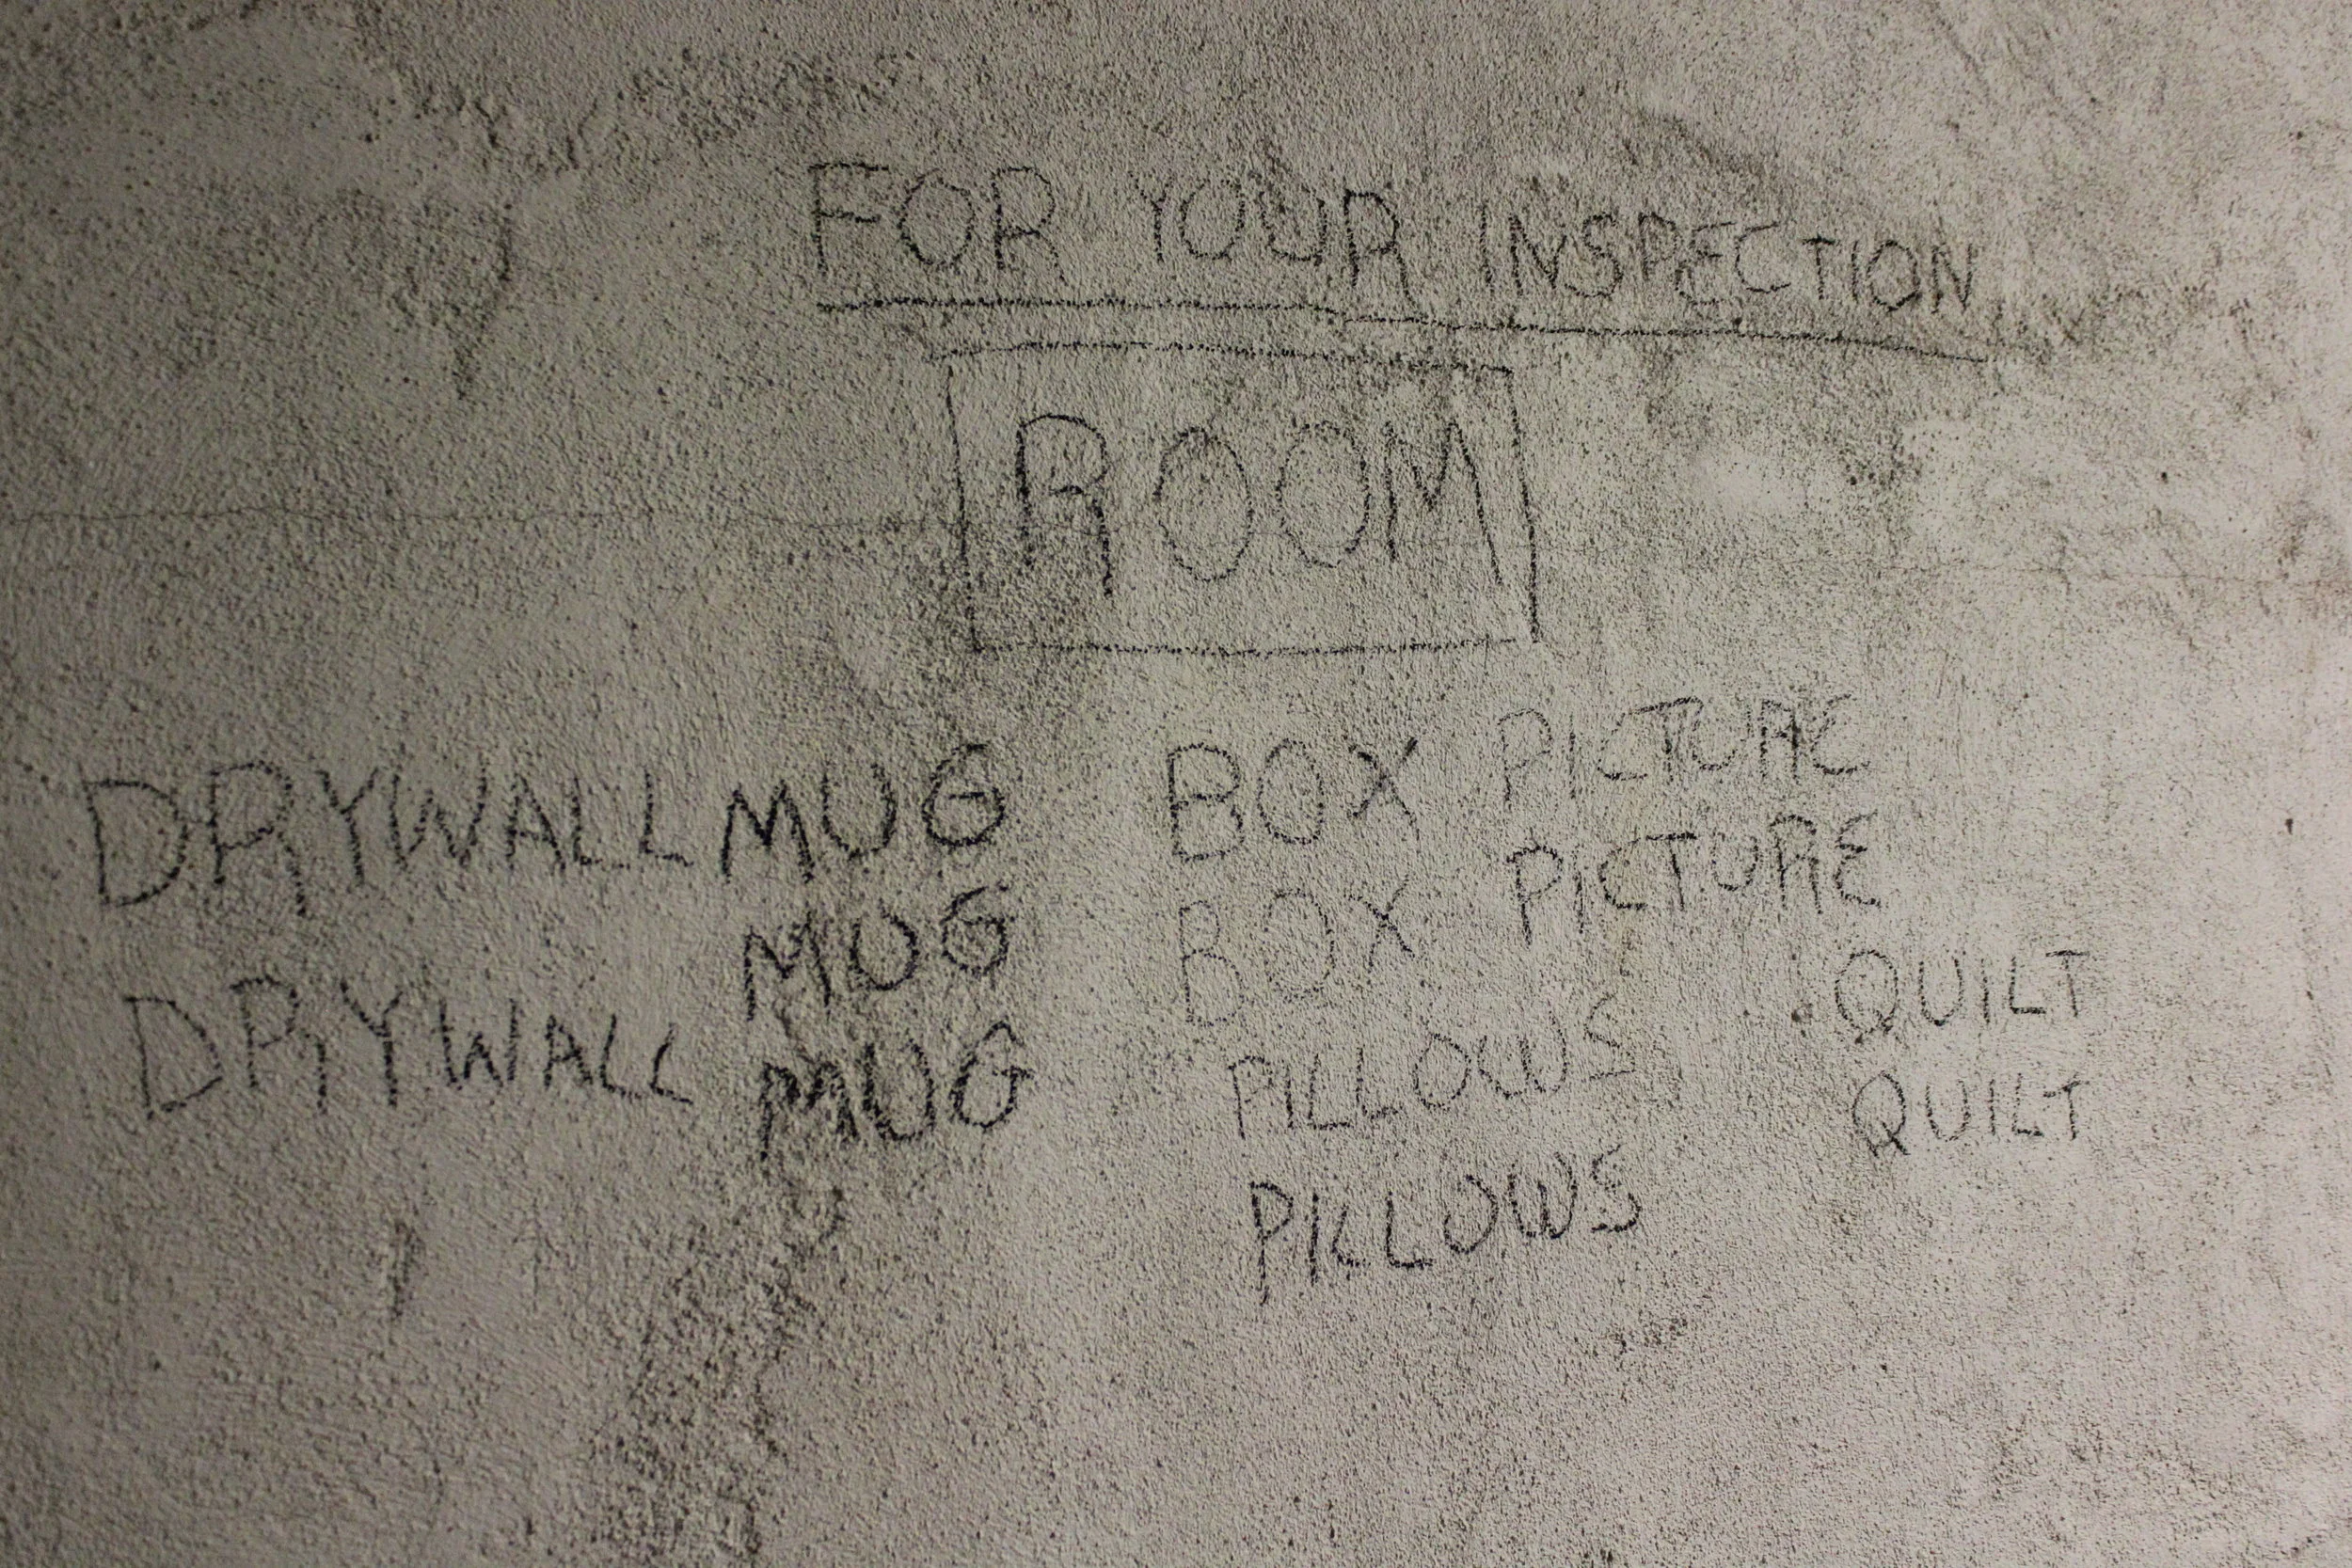 FOR YOUR INSPECTION
ROOM
DRYWALL MUG BOX PICTURE
MUG BOX PICTURE
DRYWALL MUG PILLOWS QUILT
PILLOWS QUILT